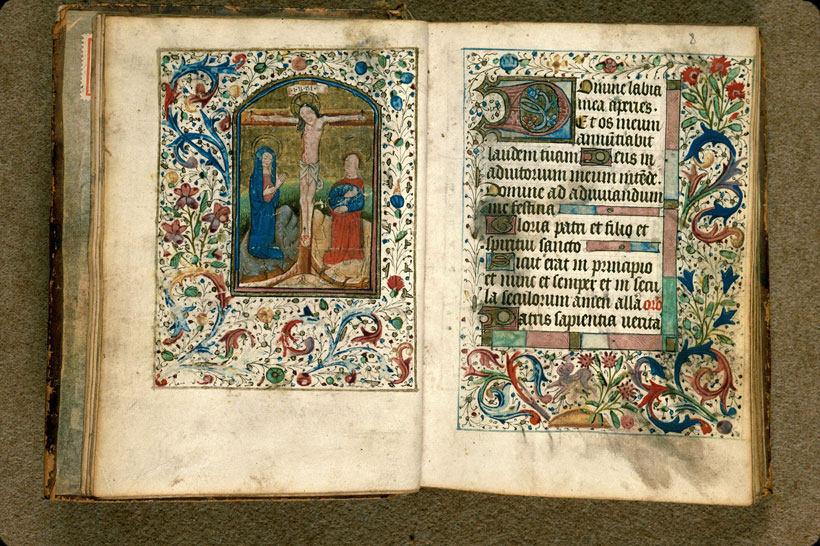 INRI
8
Domine labia
mea aperies.
Et os meum
annuntiabit
laudem tuam Deus in
adiutorium meum intēde
Domine ad adiuuandum
me festina
Gloria patri et filio et
spiritui sancto
Sicut erat in principio
et nunc et semper et in secu
la seculorum amen alla oro
Patris sapientia uerita